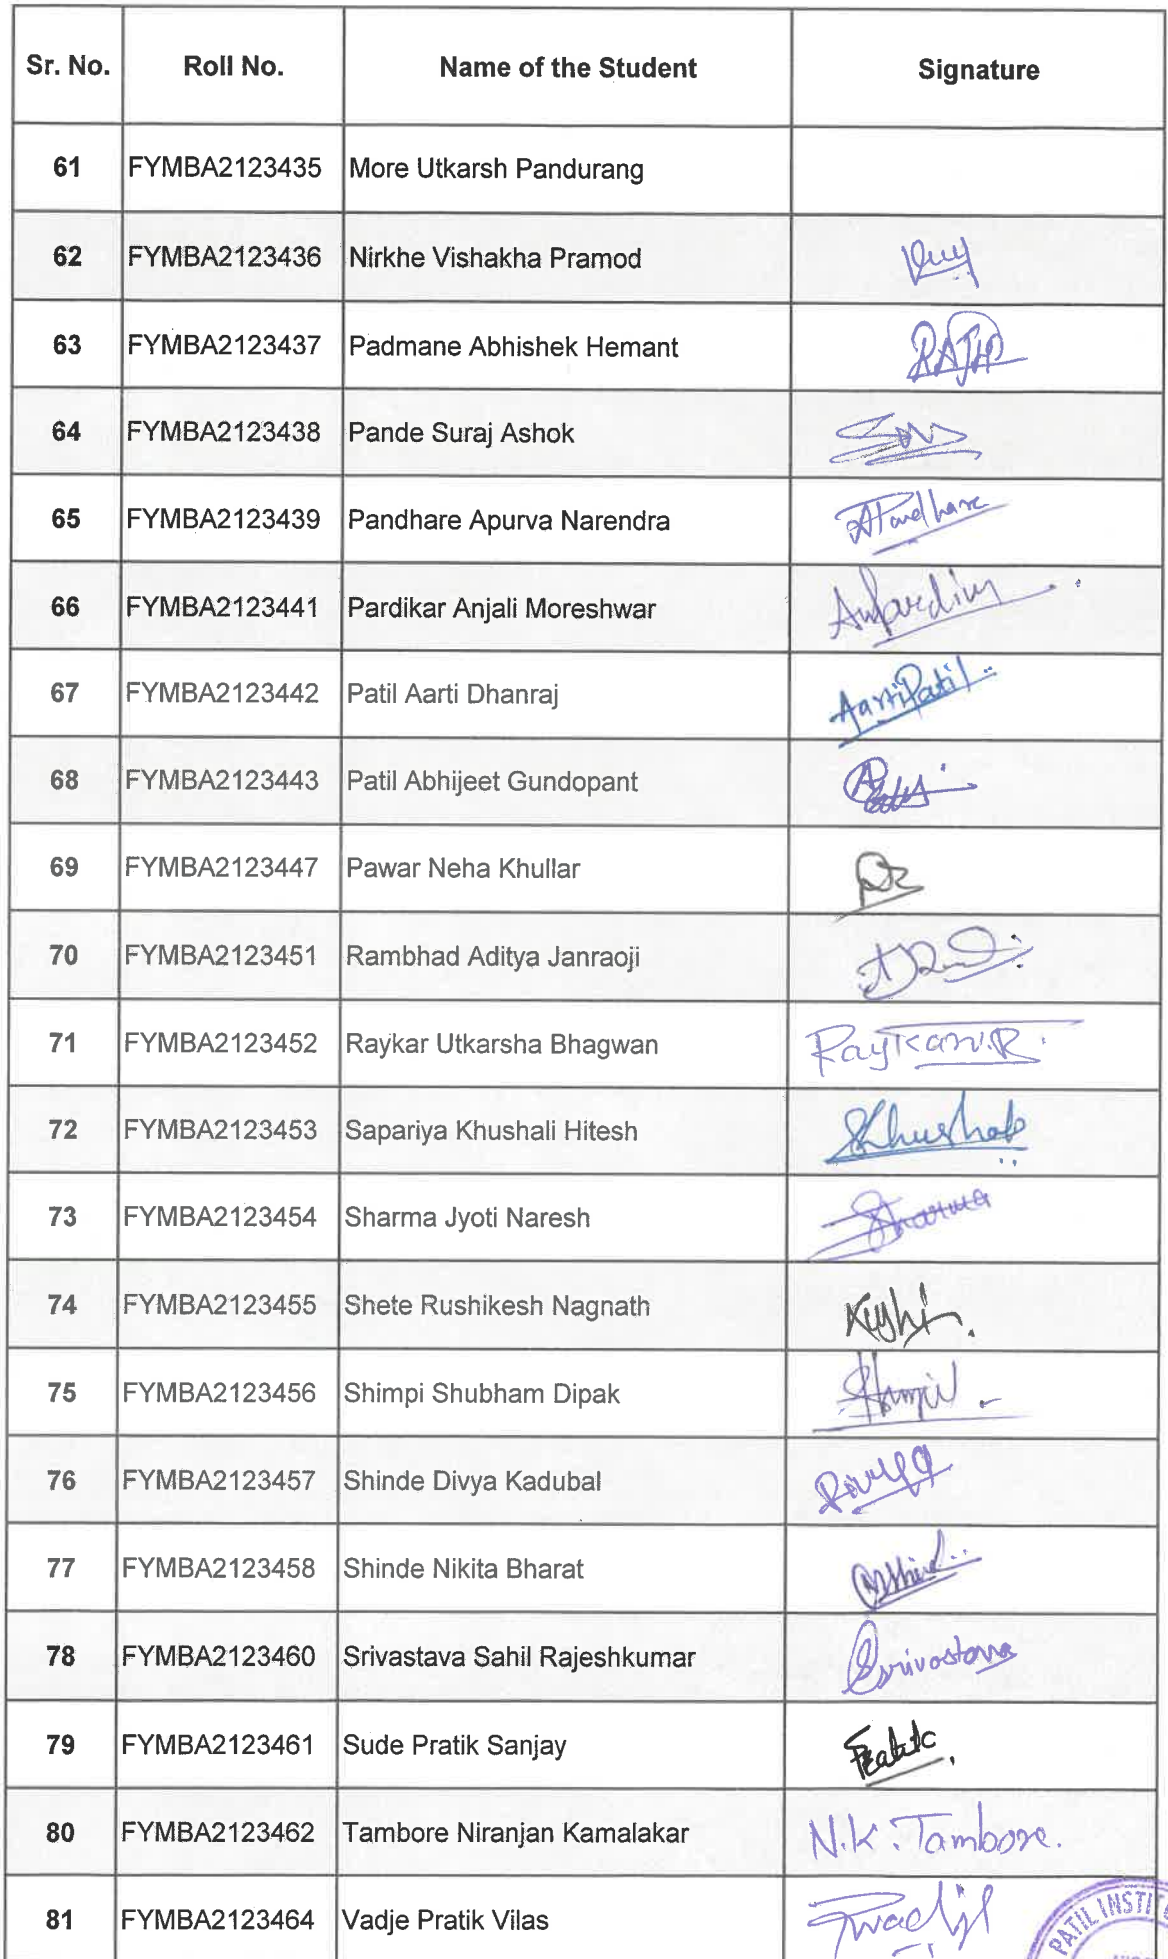 Sr. No. Roll No. Name of the Student Signature
61 FYMBA2123435 More Utkarsh Pandurang
62 FYMBA2123436 Nirkhe Vishakha Pramod
63 FYMBA2123437 Padmane Abhishek Hemant
64 FYMBA2123438 Pande Suraj Ashok
65 FYMBA2123439 Pandhare Apurva Narendra APandhare
66 FYMBA2123441 Pardikar Anjali Moreshwar
67 FYMBA2123442 Patil Aarti Dhanraj AartiPatil
68 FYMBA2123443 Patil Abhijeet Gundopant
69 FYMBA2123447 Pawar Neha Khullar
70 FYMBA2123451 Rambhad Aditya Janraoji
71 FYMBA2123452 Raykar Utkarsha Bhagwan
72 FYMBA2123453 Sapariya Khushali Hitesh
73 FYMBA2123454 Sharma Jyoti Naresh Sharma
74 FYMBA2123455 Shete Rushikesh Nagnath
75 FYMBA2123456 Shimpi Shubham Dipak
76 FYMBA2123457 Shinde Divya Kadubal
77 FYMBA2123458 Shinde Nikita Bharat
78 FYMBA2123460 Srivastava Sahil Rajeshkumar
79 FYMBA2123461 Sude Pratik Sanjay
80 FYMBA2123462 Tambore Niranjan Kamalakar N.K. Tambore.
81 FYMBA2123464 Vadje Pratik Vilas
PATIL INSTIT